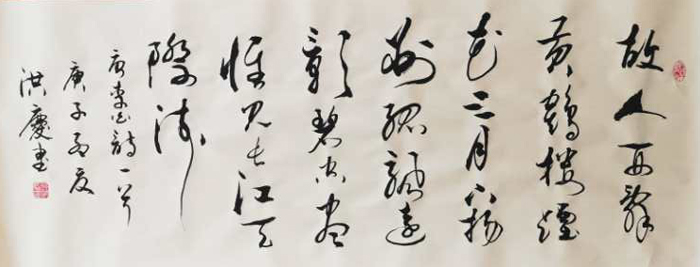 故人西辭
黃鶴樓煙
花三月下揚
州孤帆遠
影碧空盡
惟見長江天
際流
唐李白詩一首
庚子孟夏
洪慶書